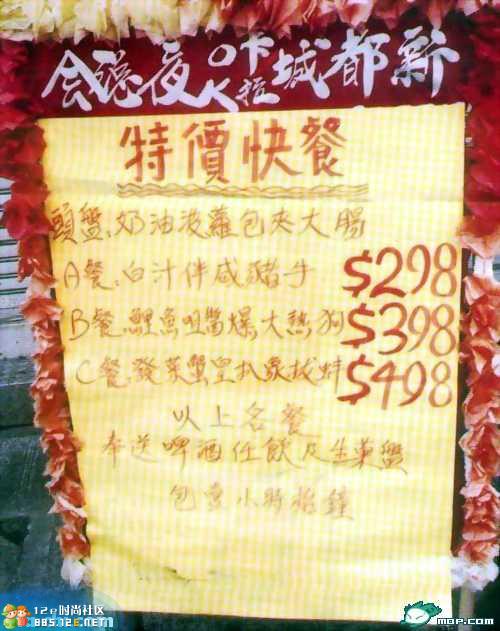 新都城卡拉OK夜總会
特價快餐
頭盤.奶油波蘿包夾大腸
A餐.白汁伴咸豬手 $298
B餐.鯉魚咀醬爆大熱狗 $398
C餐.發菜蟹皇扒象拔蚌 $498
以上各餐
奉送啤酒任飲及生菓盤
包壹小時
12e时尚社区
BBS.12E.NET
MOP.COM